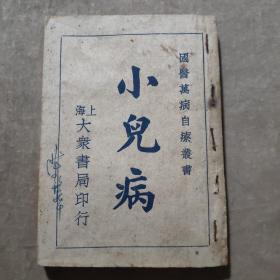 國醫萬病自療叢書
小兒病
上海大衆書局印行